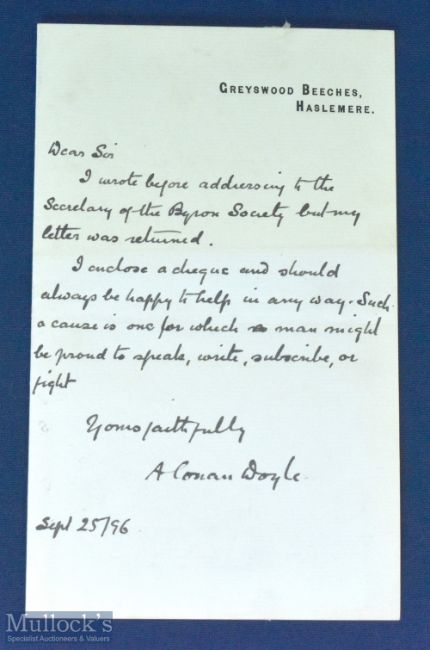 GREYSWOOD BEECHES,
HASLEMERE.
Dear Sir
I wrote before addressing to the
Secretary of the Byron Society but my
letter was returned.
I enclose a cheque and should
always be happy to help in any way. Such
a cause is one for which a man might
be proud to speak, write, subscribe, or
fight
Yours faithfully
A Conan Doyle.
Sept 25/96
Mullock's
Specialist Auctioneers & Valuers